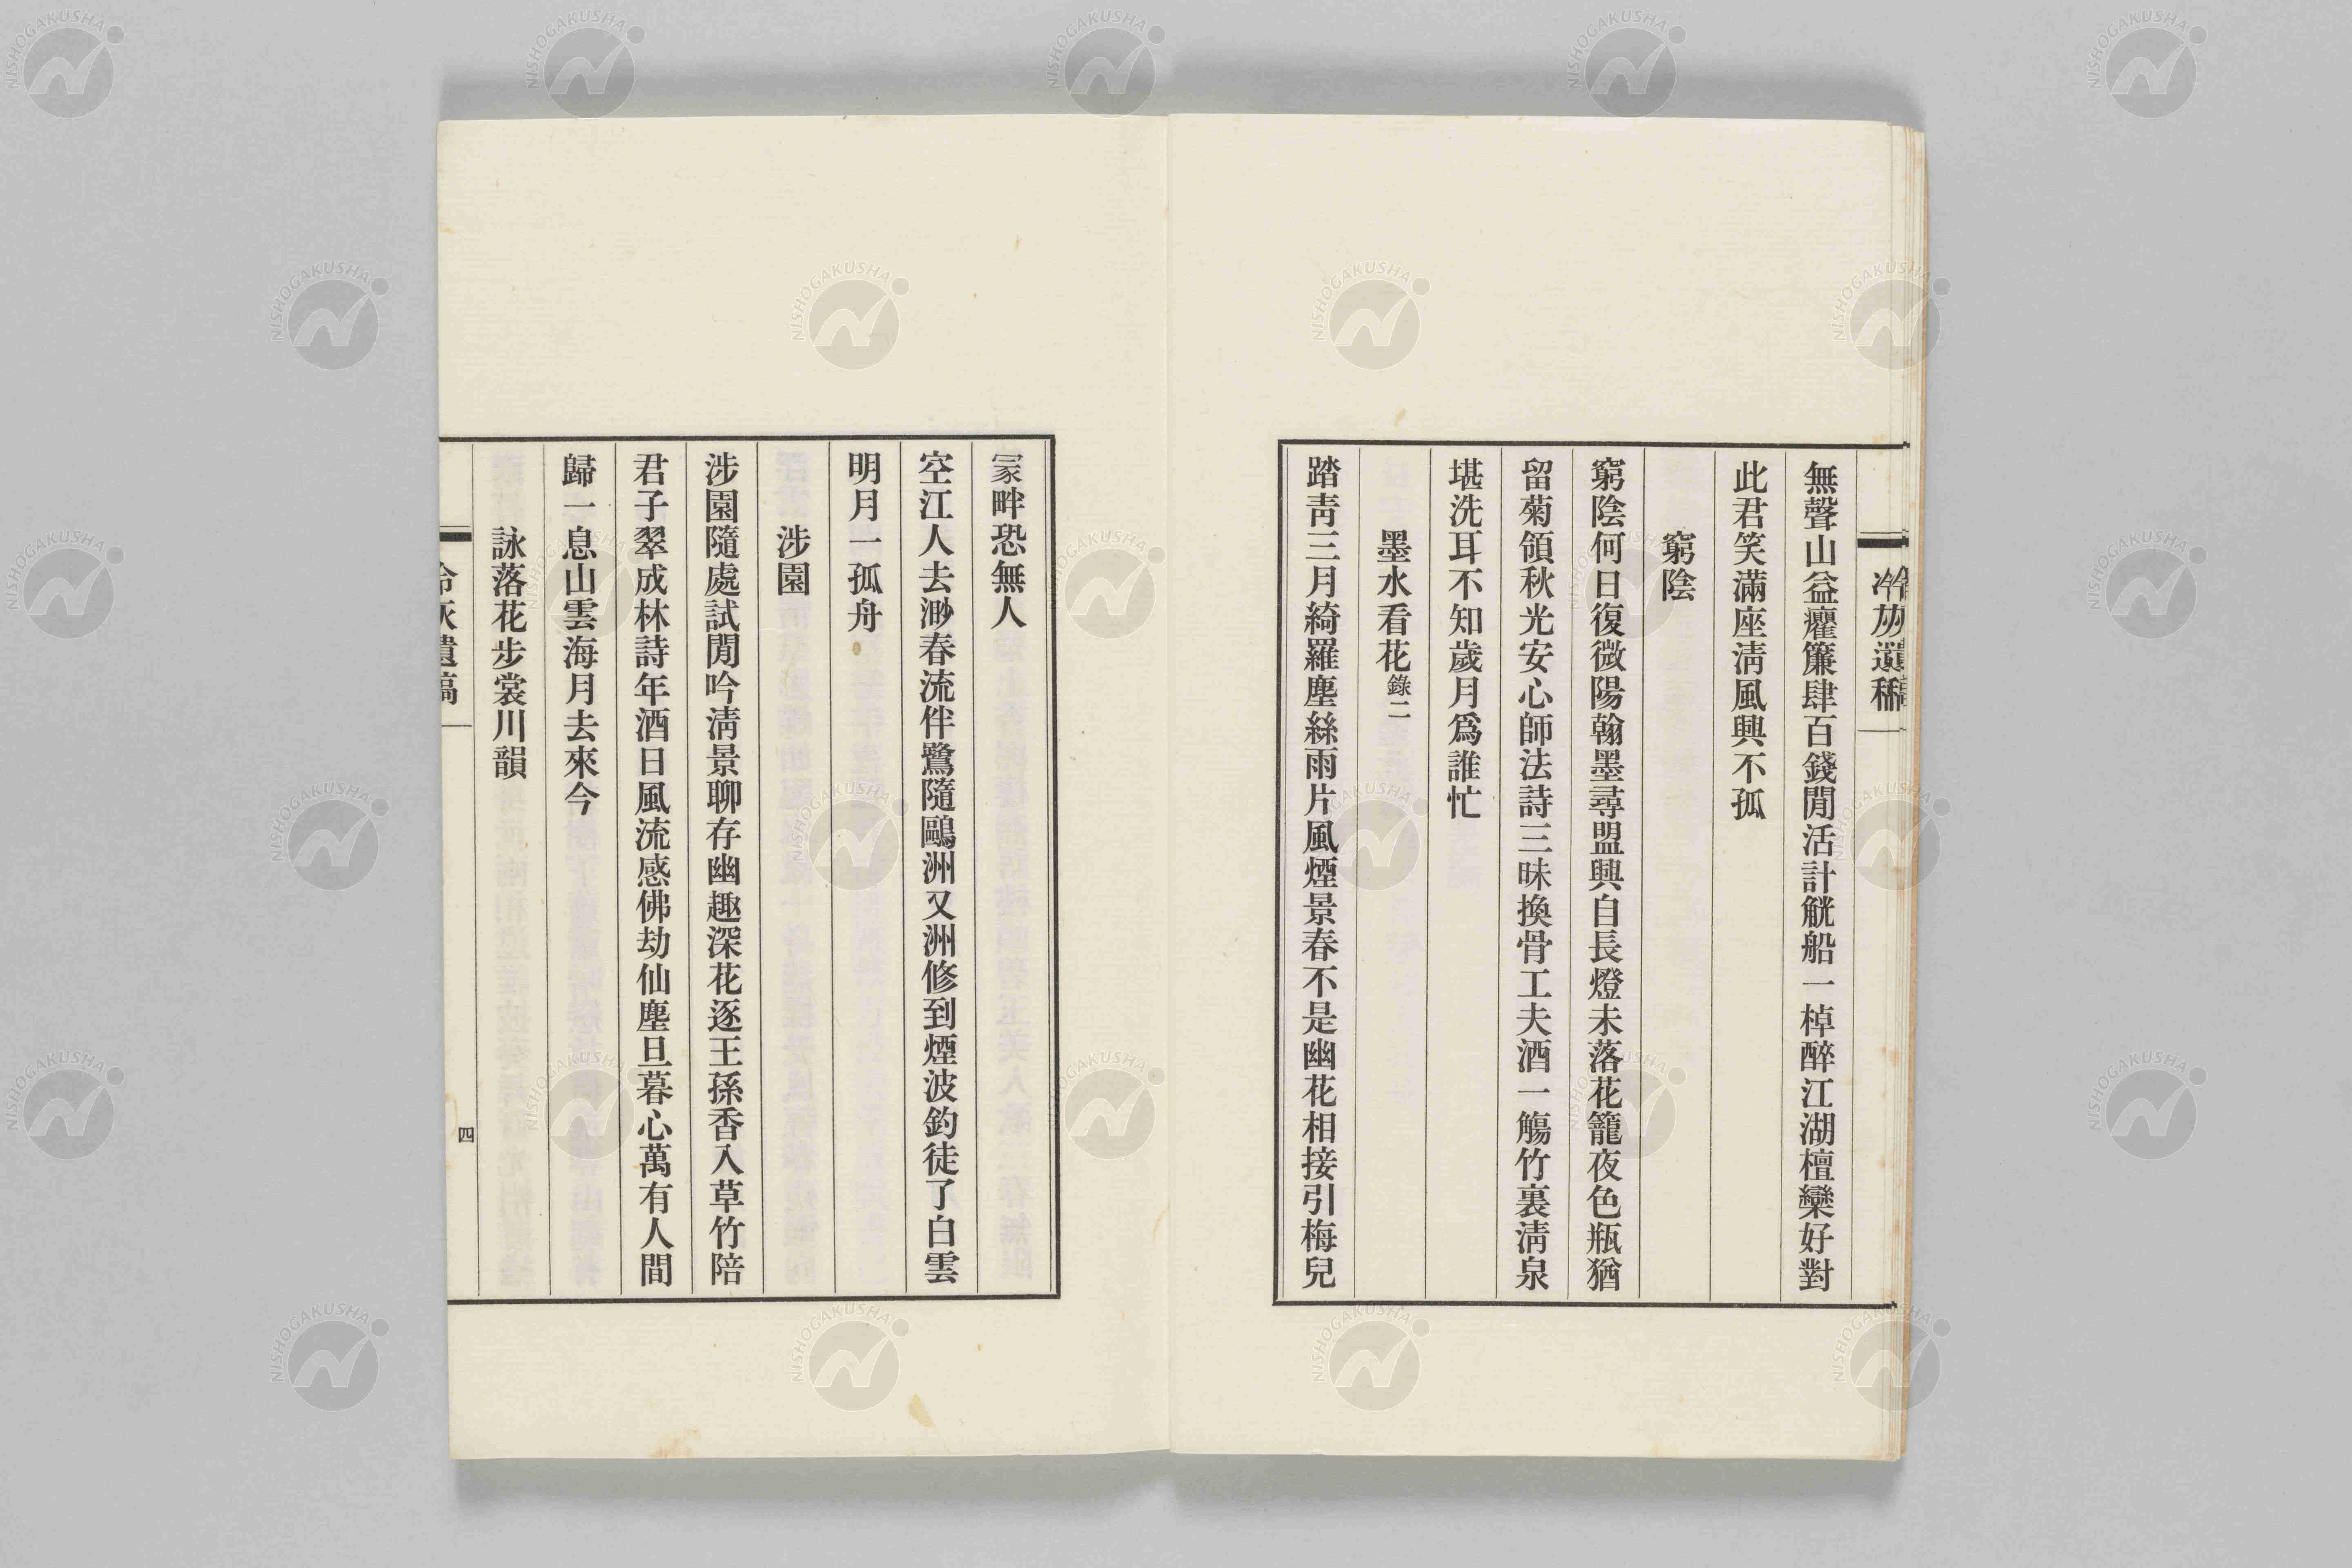 無聲山益癯簾肆百錢閒活計觥船一棹醉江湖檀欒好對
此君笑滿座淸風興不孤
窮陰
窮陰何日復微陽翰墨尋盟興自長燈未落花籠夜色瓶猶
留菊領秋光安心師法詩三昧換骨工夫酒一觴竹裏淸泉
堪洗耳不知歲月爲誰忙
墨水看花錄二
踏靑三月綺羅塵絲雨片風煙景春不是幽花相接引梅兒
冢畔恐無人
空江人去渺春流伴鷺隨鷗洲又洲修到煙波釣徒了白雲
明月一孤舟
涉園
涉園隨處試閒吟淸景聊存幽趣深花逐王孫香入草竹陪
君子翠成林詩年酒日風流感佛劫仙塵旦暮心萬有人間
歸一息山雲海月去來今
詠落花步裳川韻
冷灰遺稿
四
NISHOGAKUSHA